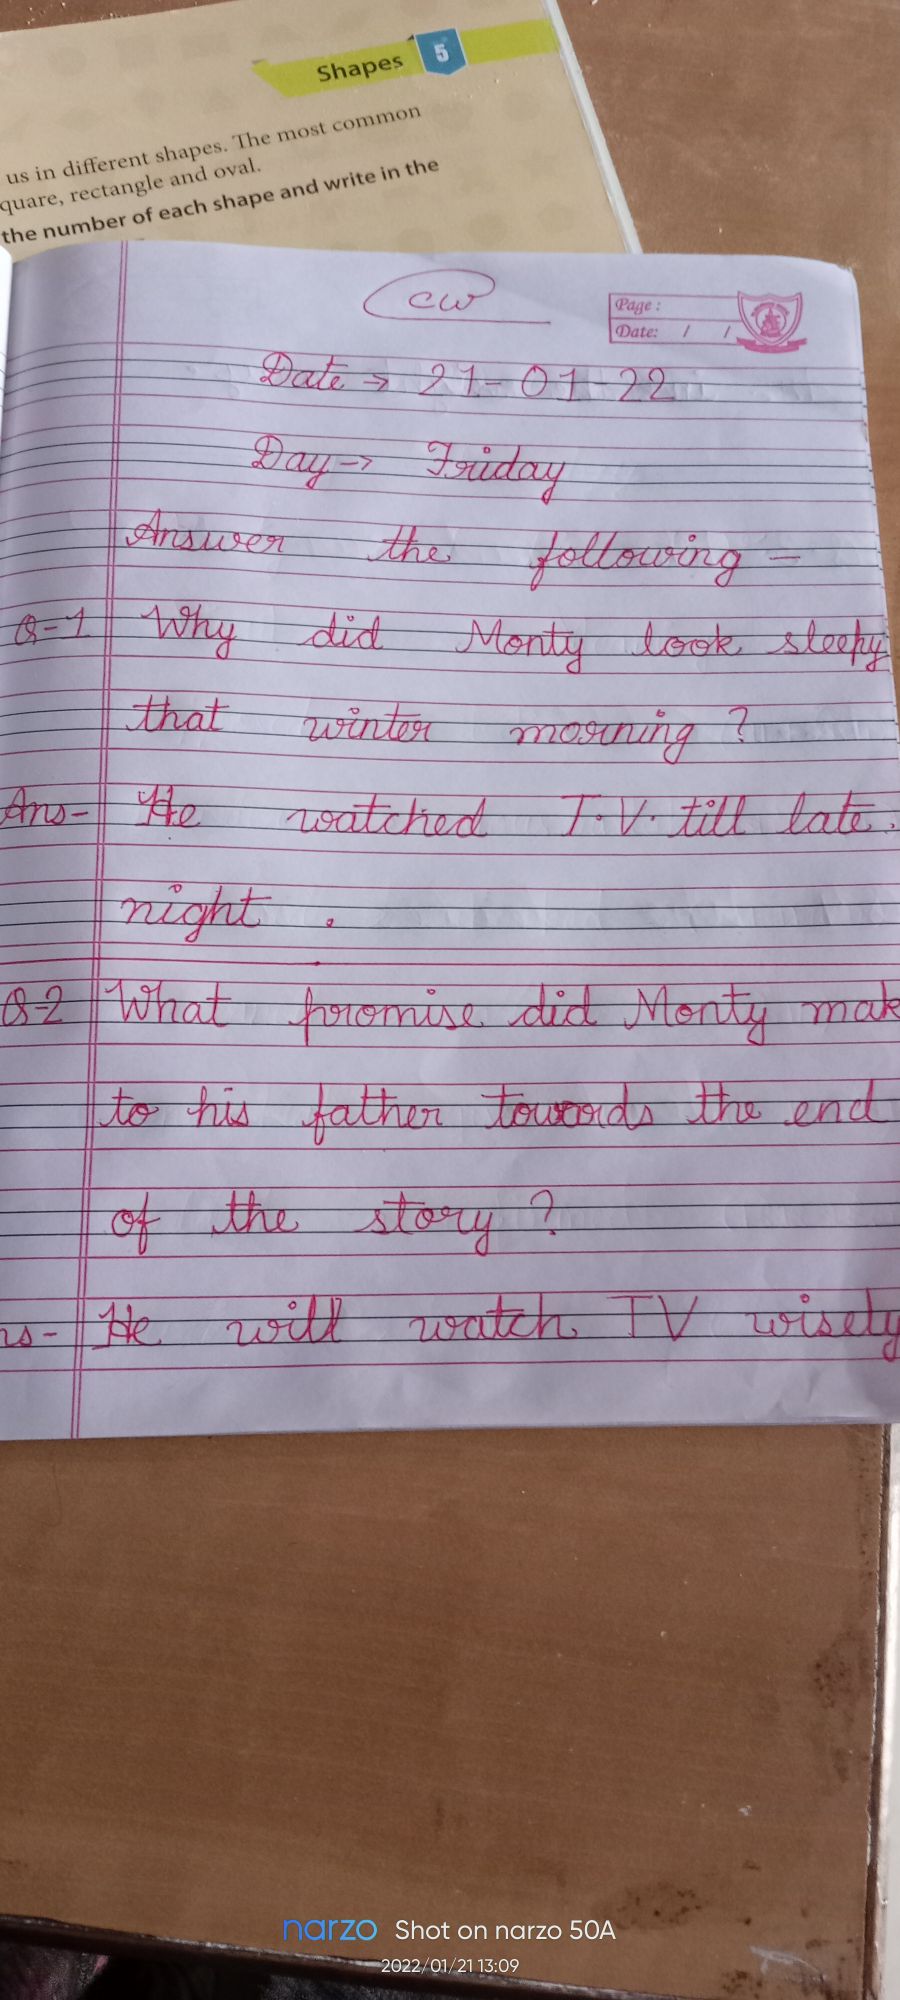 Shapes 5
us in different shapes. The most common
quare, rectangle and oval.
the number of each shape and write in the
CW
Page :
Date: / /
Date → 21-01-22
Day → Friday
Answer the following –
Q-1 Why did Monty look sleepy
that winter morning?
Ans- He watched T.V. till late.
night .
Q-2 What promise did Monty mak
to his father towards the end
of the story?
ns- He will watch TV wisely
narzo Shot on narzo 50A
2022/01/21 13:09